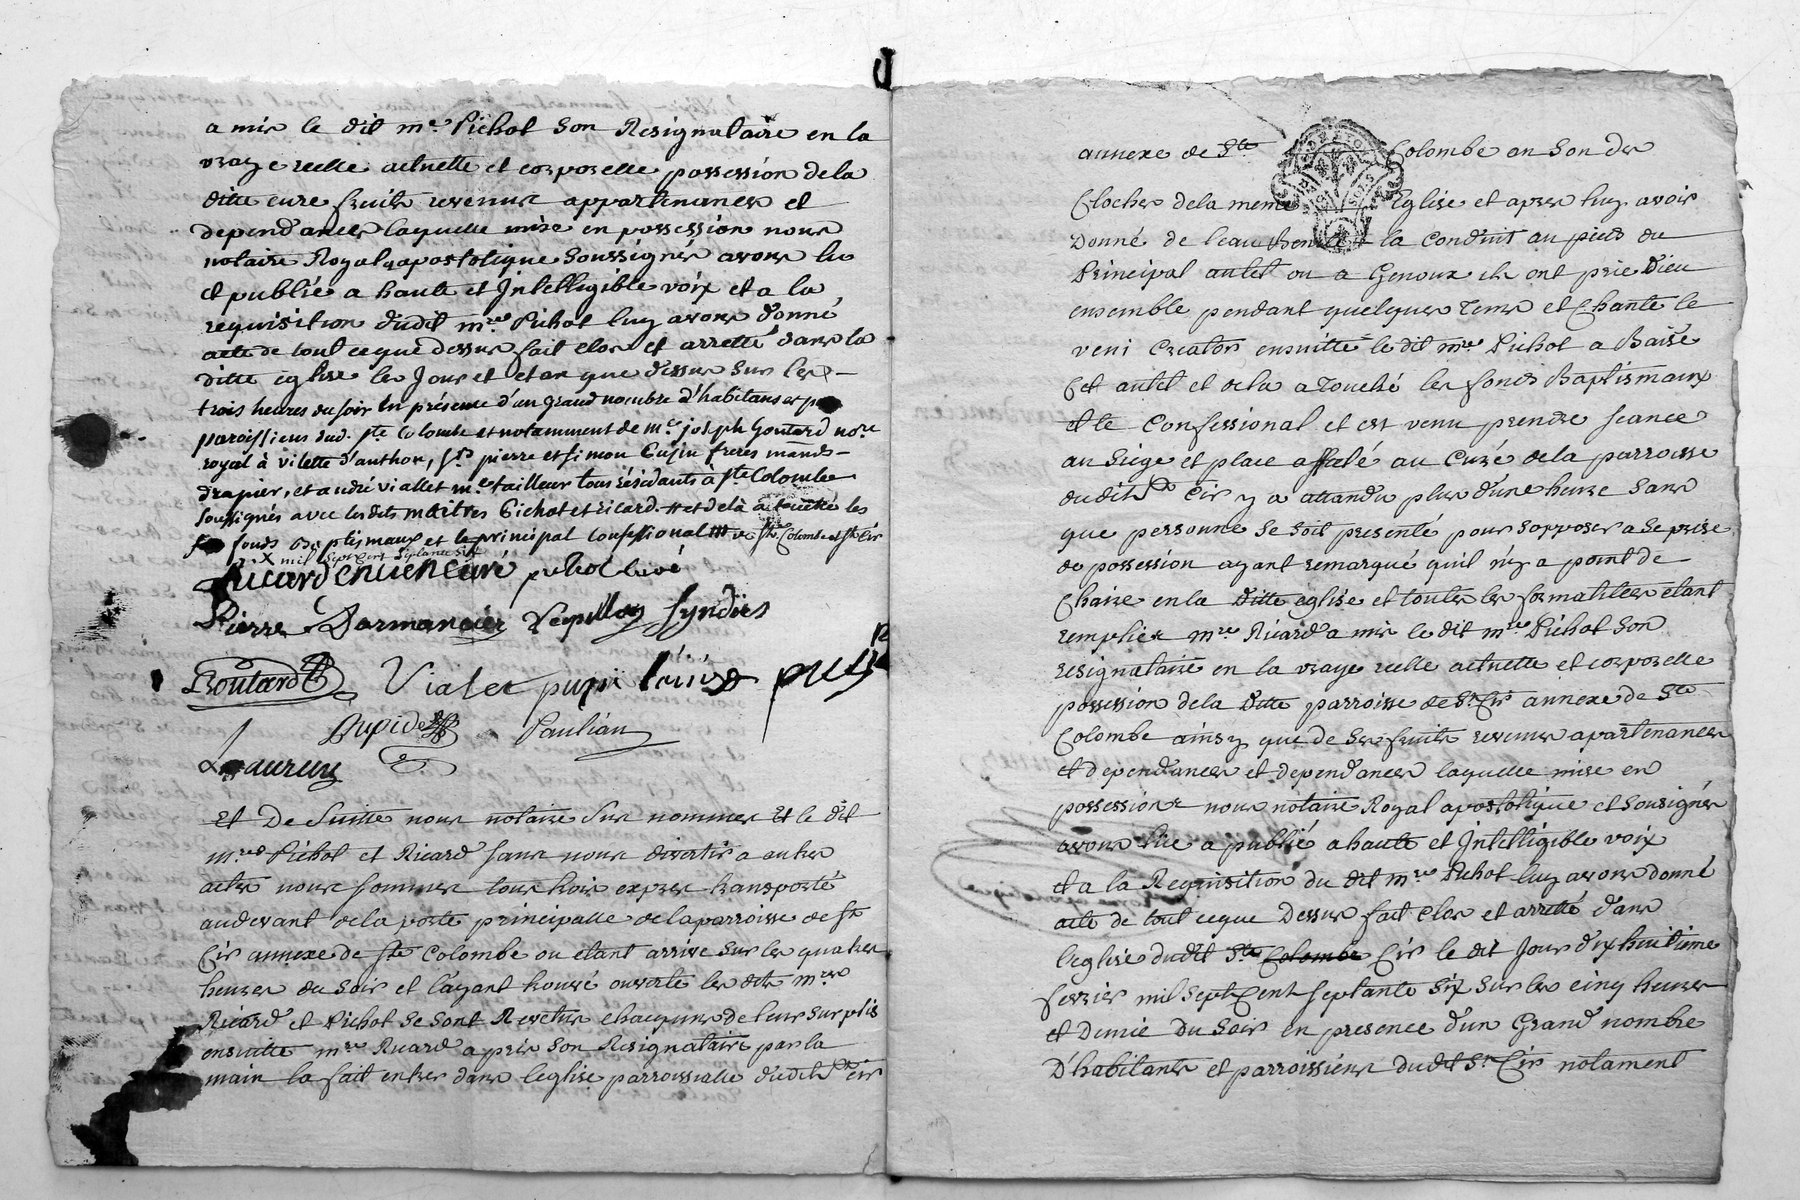 a mis le dit mre Pichot son Resignataire en la
vraye reelle actuelle et corporelle possession de la
ditte cure fruits revenus appartenances et
dependances laquelle mise en possession nous
notaire Royal apostolique soussignés avons lu
et publié a haute et Intelligible voix et a la
requisition dudit mre Pichot luy avons donné
acte de tout ce que dessus fait clos et arretté dans la
ditte eglise les Jour et et an que dessus sur les
trois heures du soir En présence d'un grand nombre d'habitans et
paroissiens dud. ste Colombe et notamment de me joseph Goutard nore
royal à vilette d'anthon, srs pierre et simon Cusin freres mands
drapier, et andré viallet me tailleur tous résidants à ste Colombe
soussignés avec lesdits maitres Pichot et ricard. # et delà a touché les
fonds baptismaux et le principal confessional ste Colombe et st Cir
mil sept cent septante six
Ricard encien curé pichot curé
Pierre Dormancier syndics
Goutard Vialet
Dupide Paulian
Et De Suitte nous notaire sus nommer Et le dit
mres Pichot et Ricard sans nous divertir a autres
actes nous sommes tous trois expres transporté
audevant de la porte principalle de la parroisse de st
Cir annexe de ste Colombe ou etant arrive sur les quatres
heures du soir et layant trouvé ouverte les dits mres
Ricard et Pichot se sont Revetus chacuns de leur surplis
ensuitte mre Ricard a pris son Resignataire par la
main la fait entrer dans leglise parroissialle dudit st Cir
annexe de Ste Colombe au son des
Cloches de la meme Eglise et apres luy avoir
Donné de leau benite la conduit au pied du
Principal autel ou a Genoux ils ont prie Dieu
ensemble pendant quelques tems et Chante le
veni Creator ensuitte le dit mre Pichot a Baisé
Cet autel et dela a Touché les fonds Baptismaux
et le Confessional et est venu prendre seance
au Siege et place affecté au Curé de la parroisse
dudit st Cir y a attandu plus d'une heure sans
que personne se soit presenté pour sopposer a se prise
de possession ayant remarqué quil n'y a point de
Chaire en la Ditte eglise et toutes les formalitées etant
remplies mre Ricard a mis le dit mre Pichot son
resignataire en la vraye reelle actuelle et corporelle
possession dela Ditte parroisse de St Cir annexe de Ste
Colombe ainsy que de ses fruits revenus apartenances
et dependances et dependances laquelle mise en
possession nous notaire Royal apostolique et sousignés
avons lüe a publié a haute et Intelligible voix
et a la Requisition du dit mre Pichot luy avons donné
acte de tout ceque Dessus fait clos et arretté d'ans
leglise dudit Ste Colombe Cir le dit Jour dixhuitieme
fevrier mil Sept Cent septante Six sur les cinq heures
et Demie du soir en presence d'un Grand nombre
D'habitants et parroissiens dudit St Cir notament